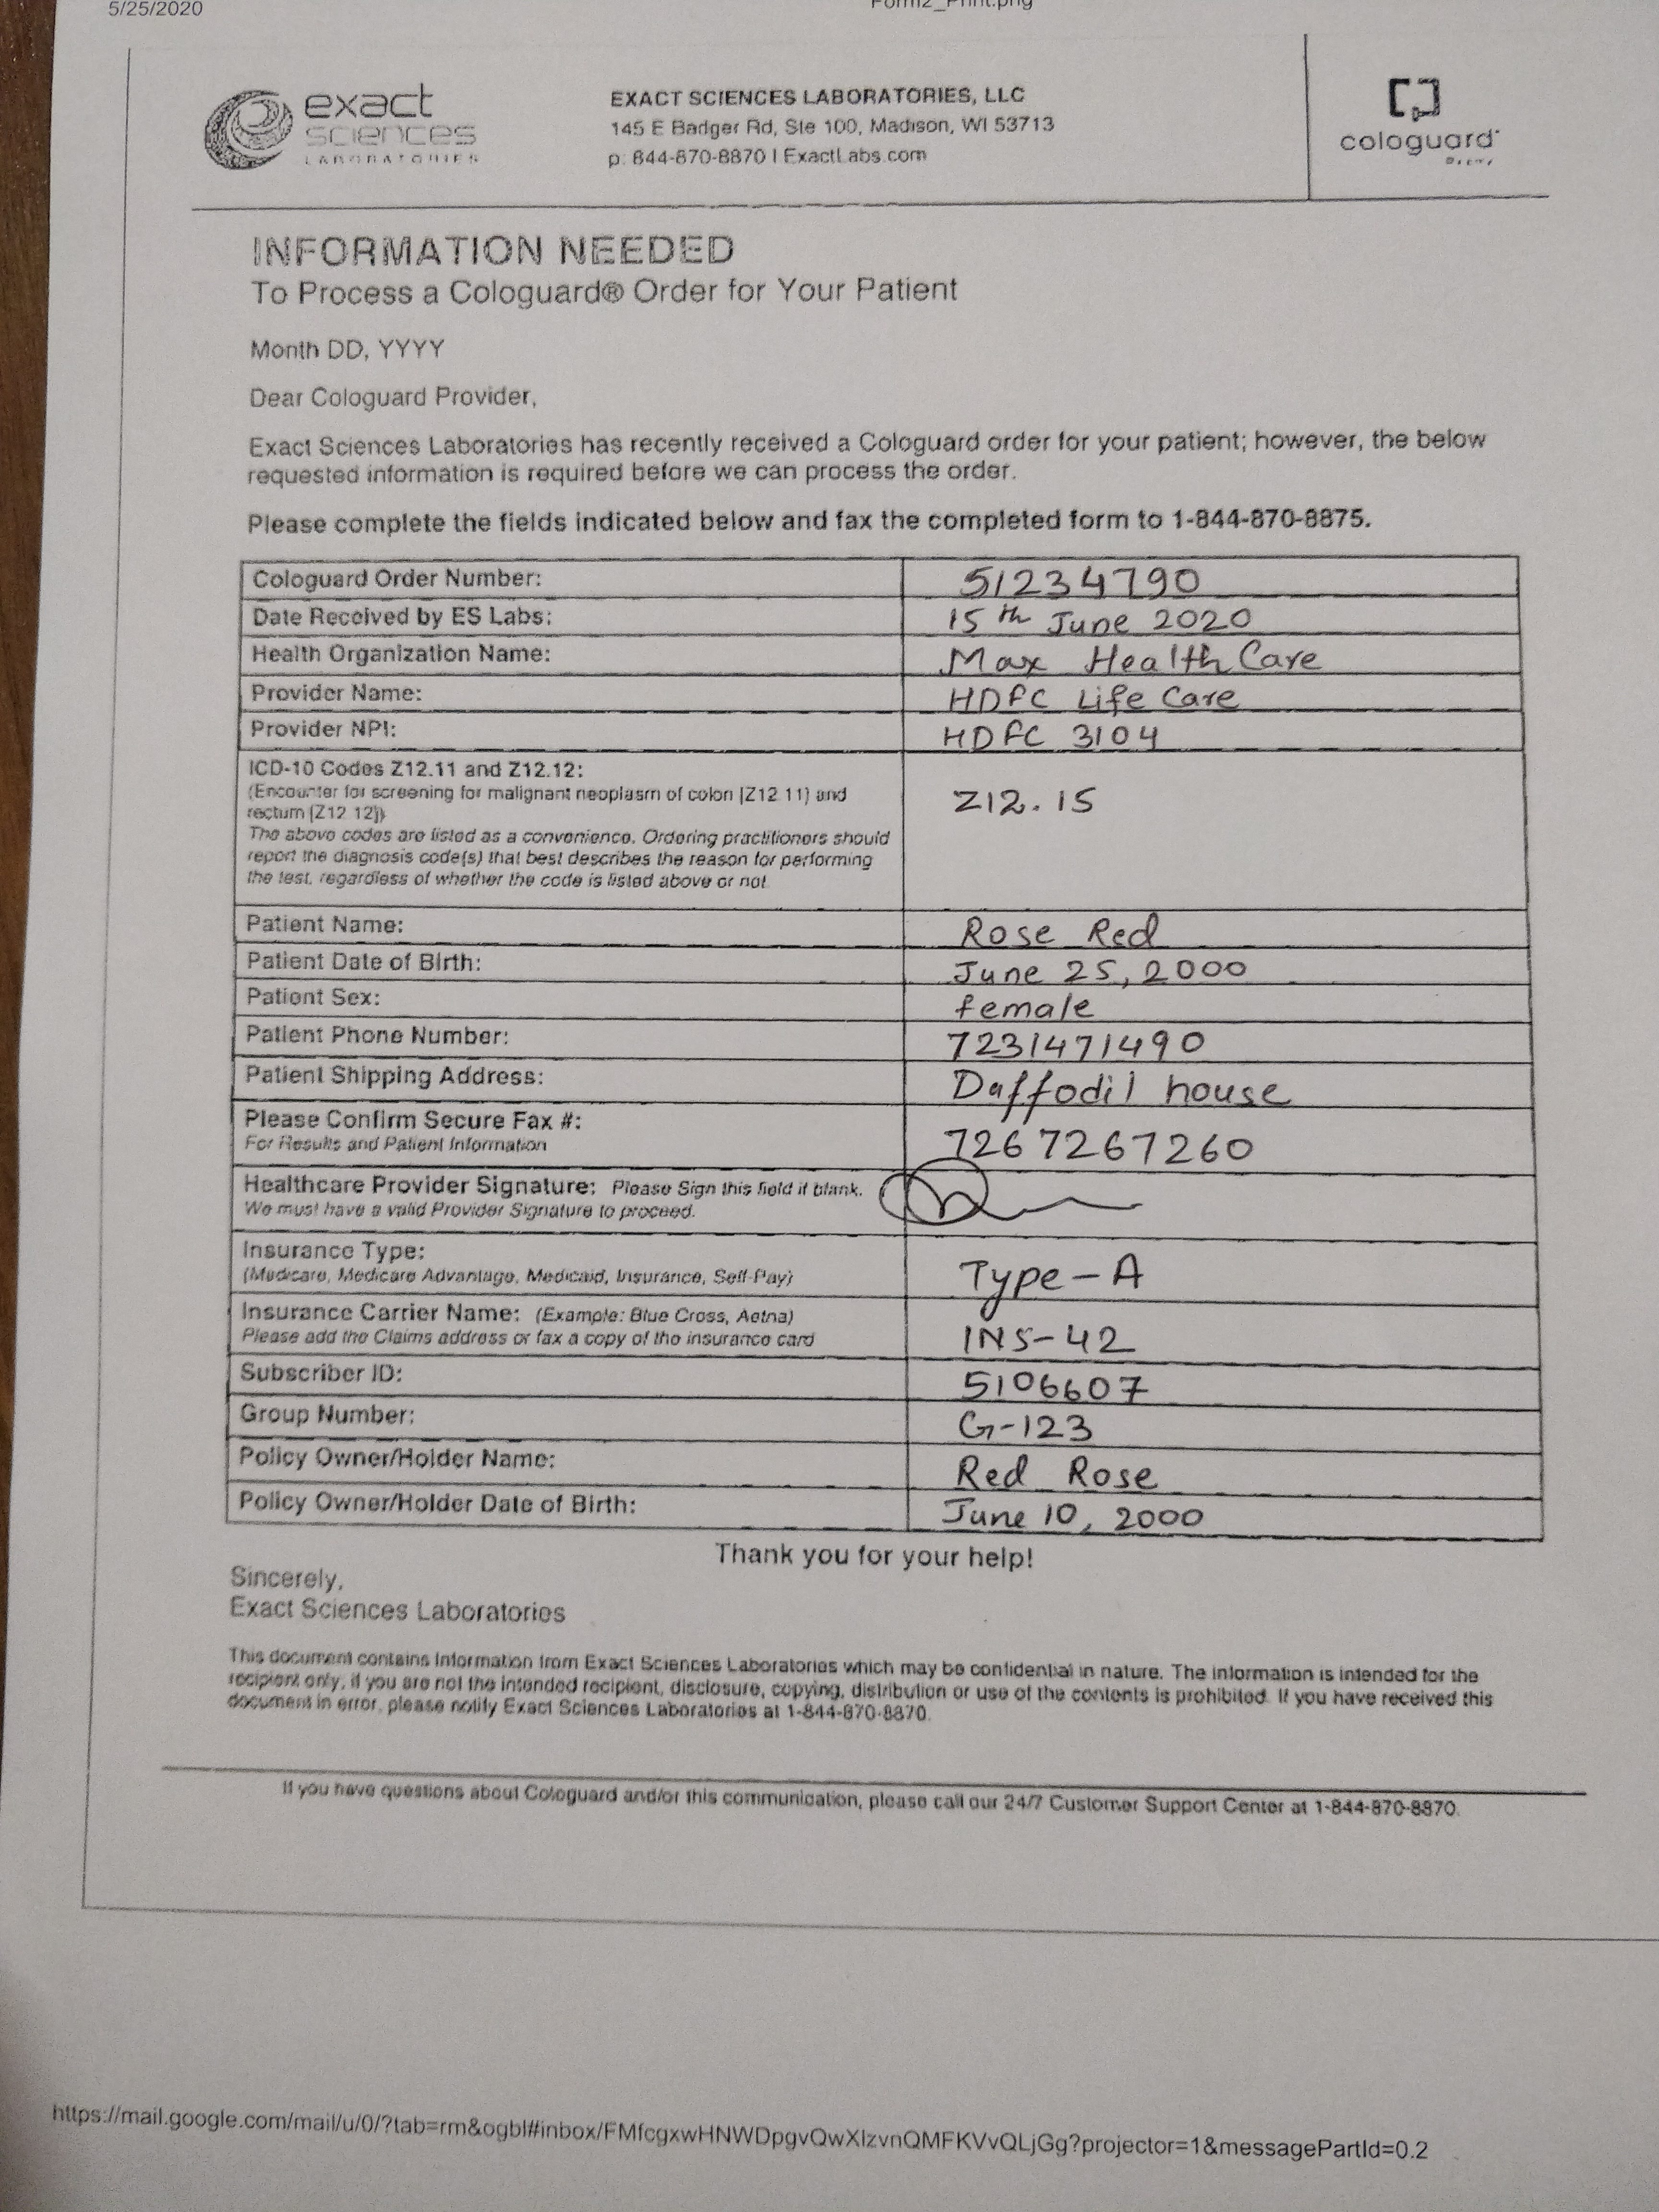 5/25/2020
Form2_Print.png
exact
sciences
LABORATORIES
EXACT SCIENCES LABORATORIES, LLC
145 E Badger Rd, Ste 100, Madison, WI 53713
p: 844-870-8870 | ExactLabs.com
cologuard
INFORMATION NEEDED
To Process a Cologuard® Order for Your Patient
Month DD, YYYY
Dear Cologuard Provider,
Exact Sciences Laboratories has recently received a Cologuard order for your patient; however, the below
requested information is required before we can process the order.
Please complete the fields indicated below and fax the completed form to 1-844-870-8875.
Cologuard Order Number: 51234790
Date Received by ES Labs: 15th June 2020
Health Organization Name: Max Health Care
Provider Name: HDFC Life Care
Provider NPI: HDFC 3104
ICD-10 Codes Z12.11 and Z12.12:
(Encounter for screening for malignant neoplasm of colon [Z12.11] and
rectum [Z12.12])
The above codes are listed as a convenience. Ordering practitioners should
report the diagnosis code(s) that best describes the reason for performing
the test, regardless of whether the code is listed above or not.
Z12.15
Patient Name: Rose Red
Patient Date of Birth: June 25, 2000
Patient Sex: female
Patient Phone Number: 7231471490
Patient Shipping Address: Daffodil house
Please Confirm Secure Fax #:
For Results and Patient Information
7267267260
Healthcare Provider Signature: Please Sign this field if blank.
We must have a valid Provider Signature to proceed.
Insurance Type:
(Medicare, Medicare Advantage, Medicaid, Insurance, Self-Pay)
Type-A
Insurance Carrier Name: (Example: Blue Cross, Aetna)
Please add the Claims address or fax a copy of the insurance card
INS-42
Subscriber ID: 5106607
Group Number: G-123
Policy Owner/Holder Name: Red Rose
Policy Owner/Holder Date of Birth: June 10, 2000
Thank you for your help!
Sincerely,
Exact Sciences Laboratories
This document contains Information from Exact Sciences Laboratories which may be confidential in nature. The information is intended for the
recipient only, if you are not the intended recipient, disclosure, copying, distribution or use of the contents is prohibited. If you have received this
document in error, please notify Exact Sciences Laboratories at 1-844-870-8870.
If you have questions about Cologuard and/or this communication, please call our 24/7 Customer Support Center at 1-844-870-8870.
https://mail.google.com/mail/u/0/?tab=rm&ogbl#inbox/FMfcgxwHNWDpgvQwXlzvnQMFKVvQLjGg?projector=1&messagePartId=0.2